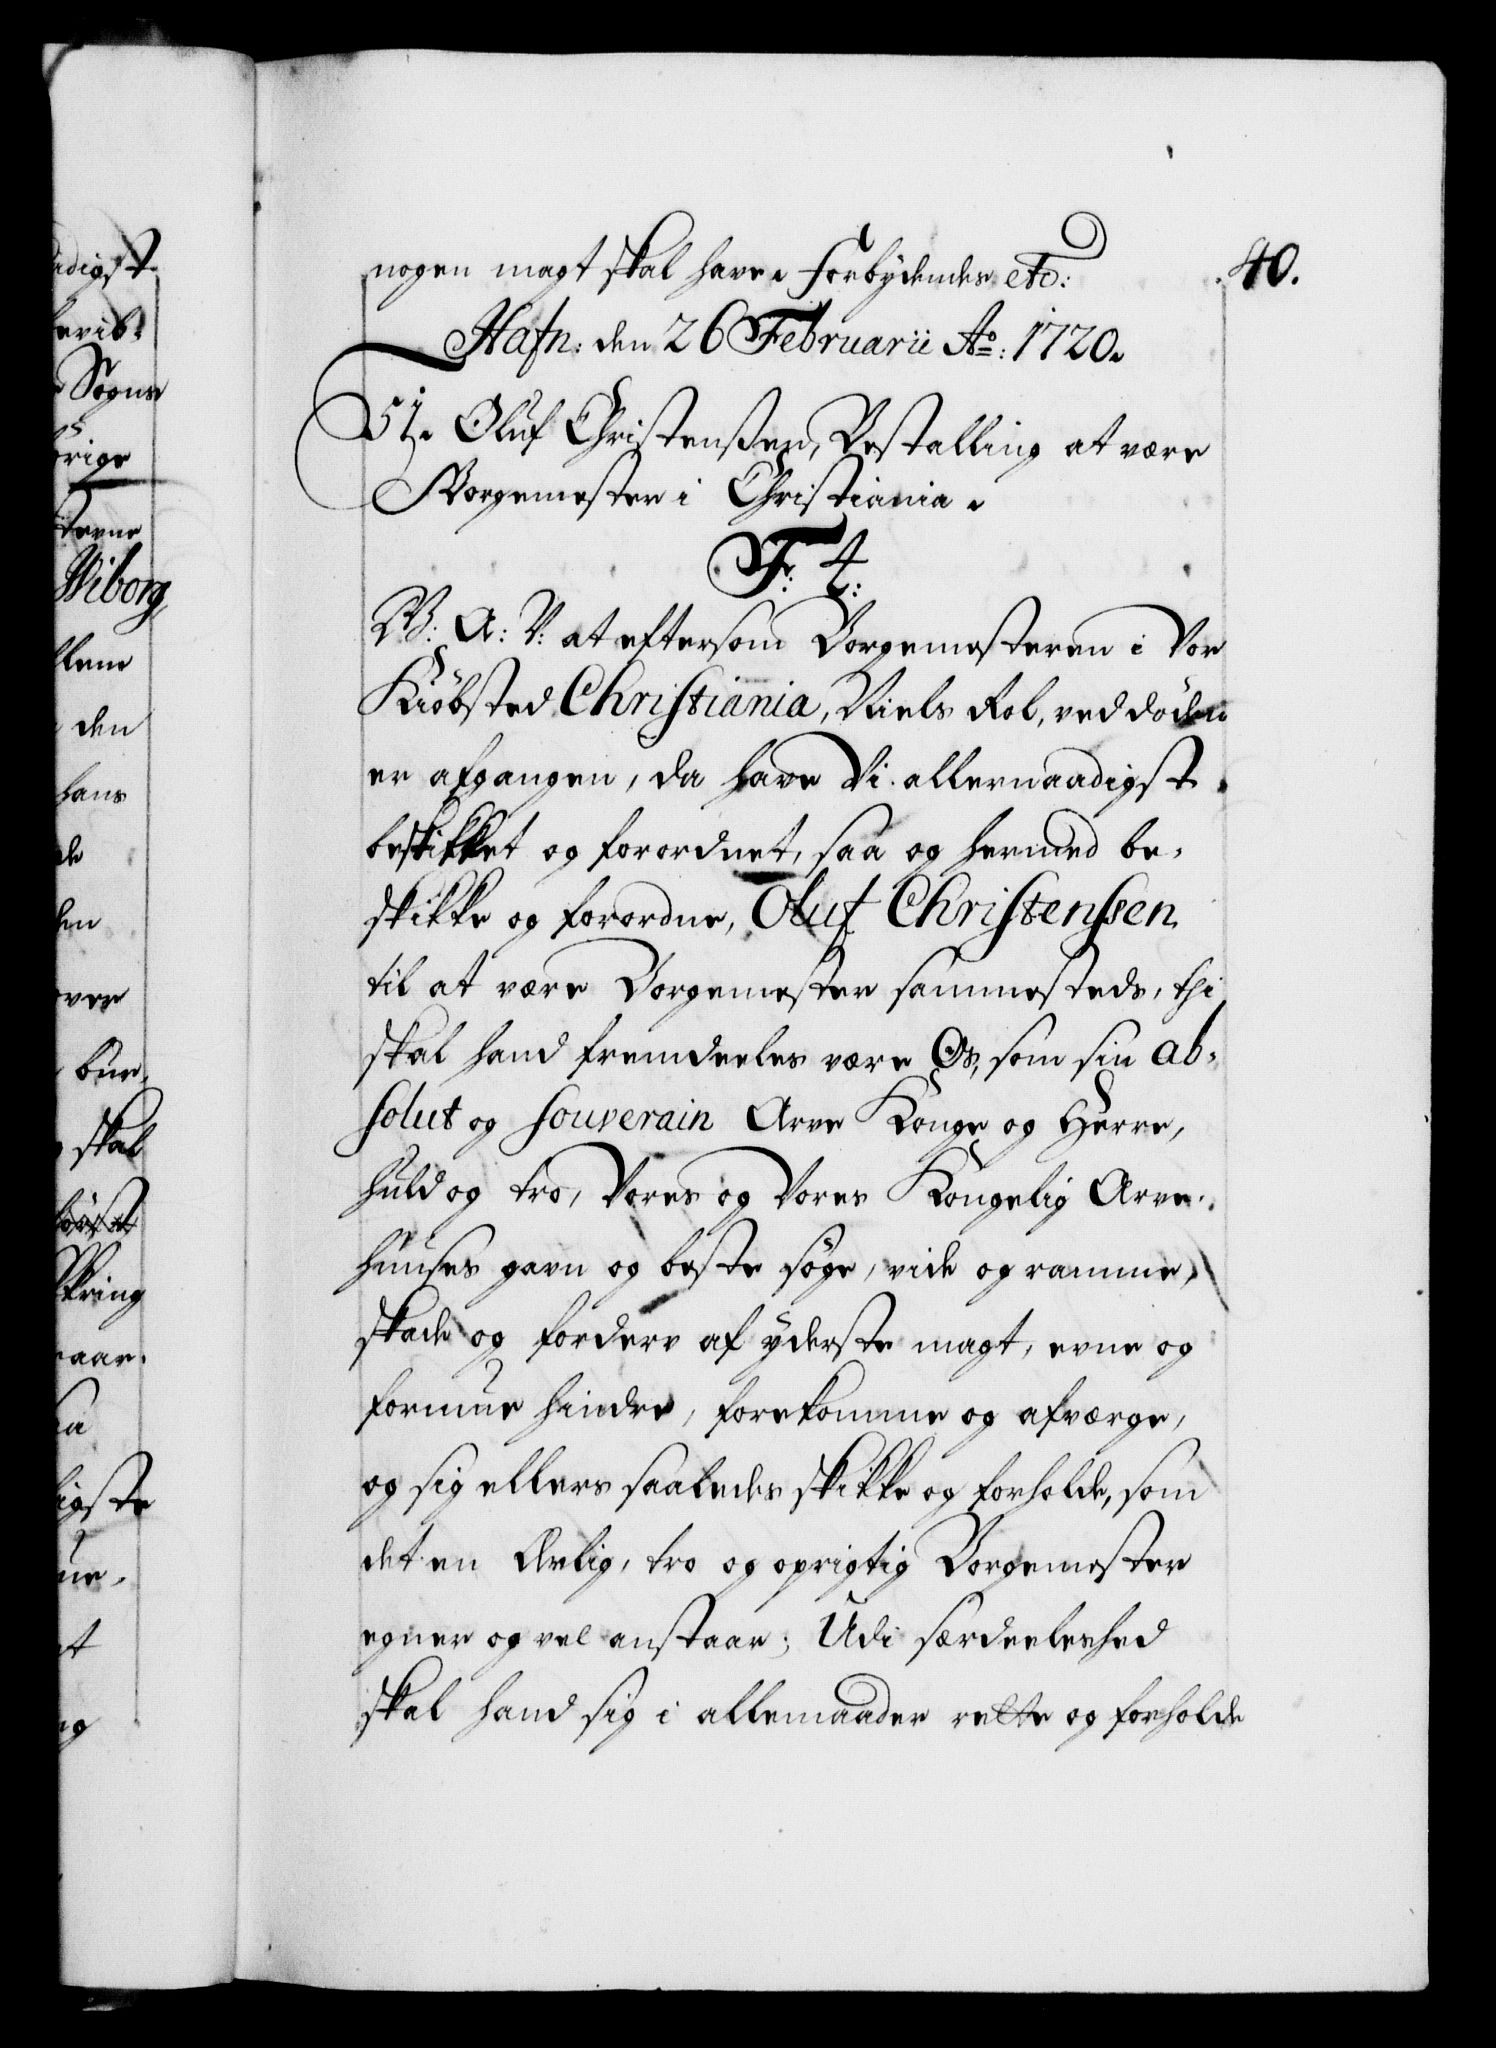 nogen magt skal have. Forbydendes etc:
40.
Hafn: den 26 Februarii Aº: 1720.
51. Oluf Christenssen, Bestalling at være
Borgemester i Christiania.
F: 4:
W: A: V: at eftersom Borgemesteren i Vor
Kiøbsted Christiania, Niels Rol, ved døden
er afgangen, da have Vi allernaadigst
beskikket og forordnet, saa og hermed be-
skikke og forordne, Oluf Christenssen,
til at være Borgemester sammesteds, thi
skal hand fremdeeles være Os, som sin ab-
solut og souverain Arve Konge og Herre,
huld og tro, Vores og Vores Kongelig Arve-
huuses gavn og beste søge, vide og ramme,
skade og forderv af yderste magt, evne og
formue hindre, forekomme og afværge,
og sig ellers saaledes skikke og forholde, som
det en Ærlig, tro og oprigtig Borgemester
egner og vel anstaar; Udi særdeeleshed
skal hand sig i allemaader rette og forholde
adigst
Sogne
terne
Wiborg
den
hans
over
skal
igste